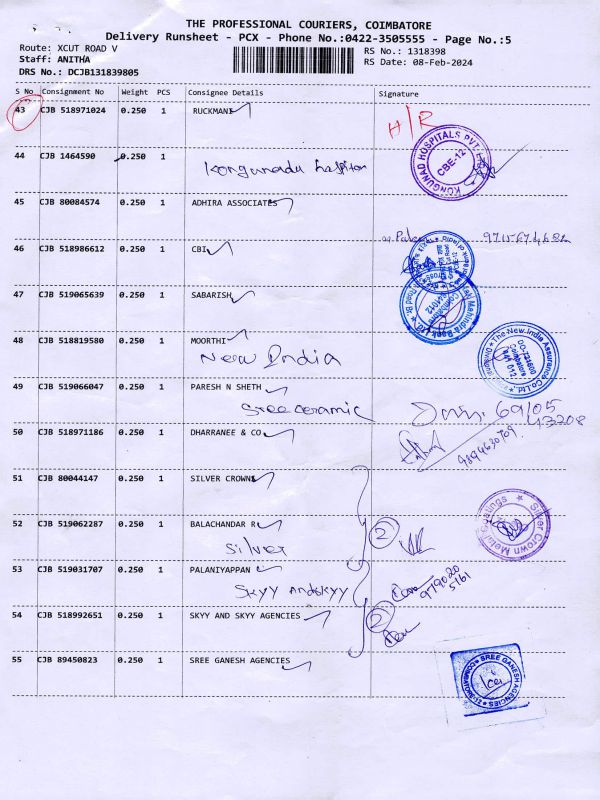 THE PROFESSIONAL COURIERS, COIMBATORE
Delivery Runsheet - PCX - Phone No.:0422-3505555 - Page No.:5
Route: XCUT ROAD V
RS No.: 1318398
Staff: ANITHA
RS Date: 08-Feb-2024
DRS No.: DCJB131839805
S No Consignment No Weight PCS Consignee Details Signature
43 CJB 518971024 0.250 1 RUCKMANI
H/R
KONGUNAD HOSPITALS PVT.
CBE-12
44 CJB 1464590 0.250 1
Kongunadu hospital
45 CJB 80084574 0.250 1 ADHIRA ASSOCIATES
46 CJB 518986612 0.250 1 CBI
47 CJB 519065639 0.250 1 SABARISH
Mahindra Bank Ltd.
Coimbatore
48 CJB 518819580 0.250 1 MOORTHI
New India
The New India Assurance Co.Ltd.
DO-721600
Coimbatore
641 012
49 CJB 519066047 0.250 1 PARESH N SHETH
Sree ceramic
69/05
43208
50 CJB 518971186 0.250 1 DHARRANEE & CO
9894630709
51 CJB 80044147 0.250 1 SILVER CROWN
Silver Crown Metal Coatings
52 CJB 519062287 0.250 1 BALACHANDAR R
Silver
2
53 CJB 519031707 0.250 1 PALANIYAPPAN
Skyy Andskyy
979020
5161
54 CJB 518992651 0.250 1 SKYY AND SKYY AGENCIES
2
55 CJB 89450823 0.250 1 SREE GANESH AGENCIES
SREE GANESH AGENCIES
COIMBATORE-12